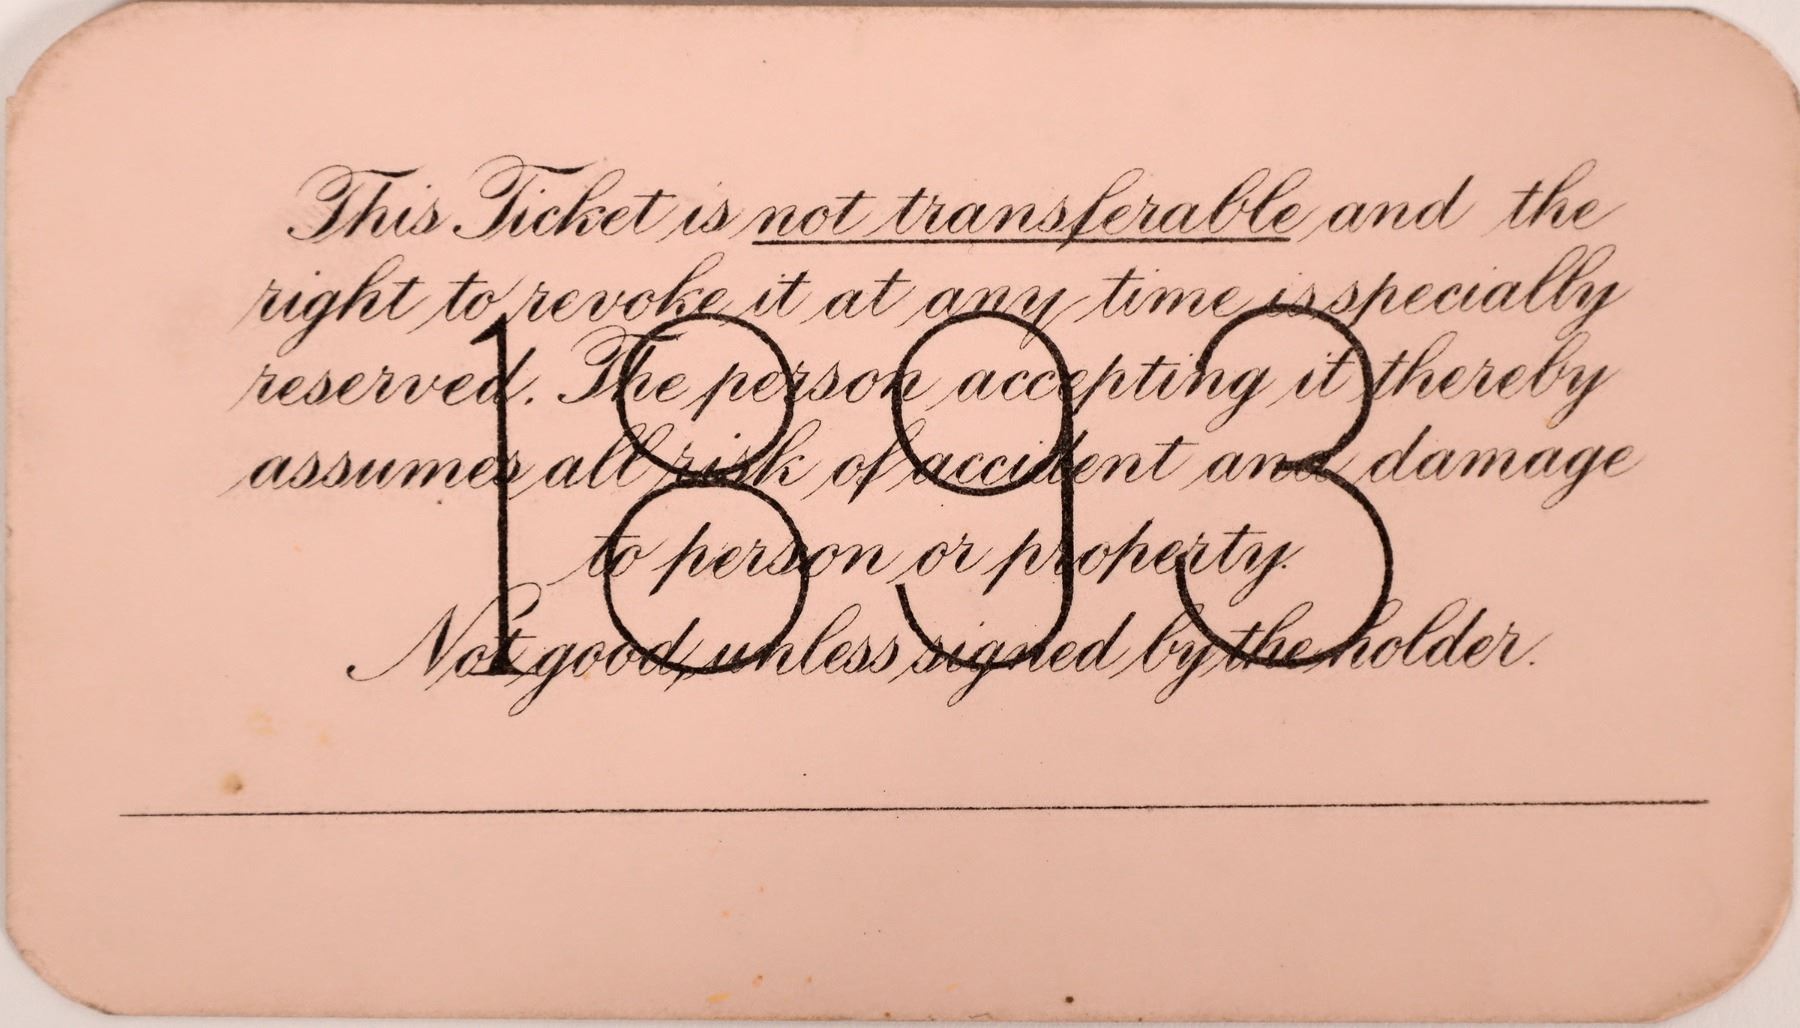 This Ticket is not transferable and the
right to revoke it at any time is specially
reserved. The person accepting it thereby
assumes all risk of accident and damage
to person or property.
Not good unless signed by the holder.
1893